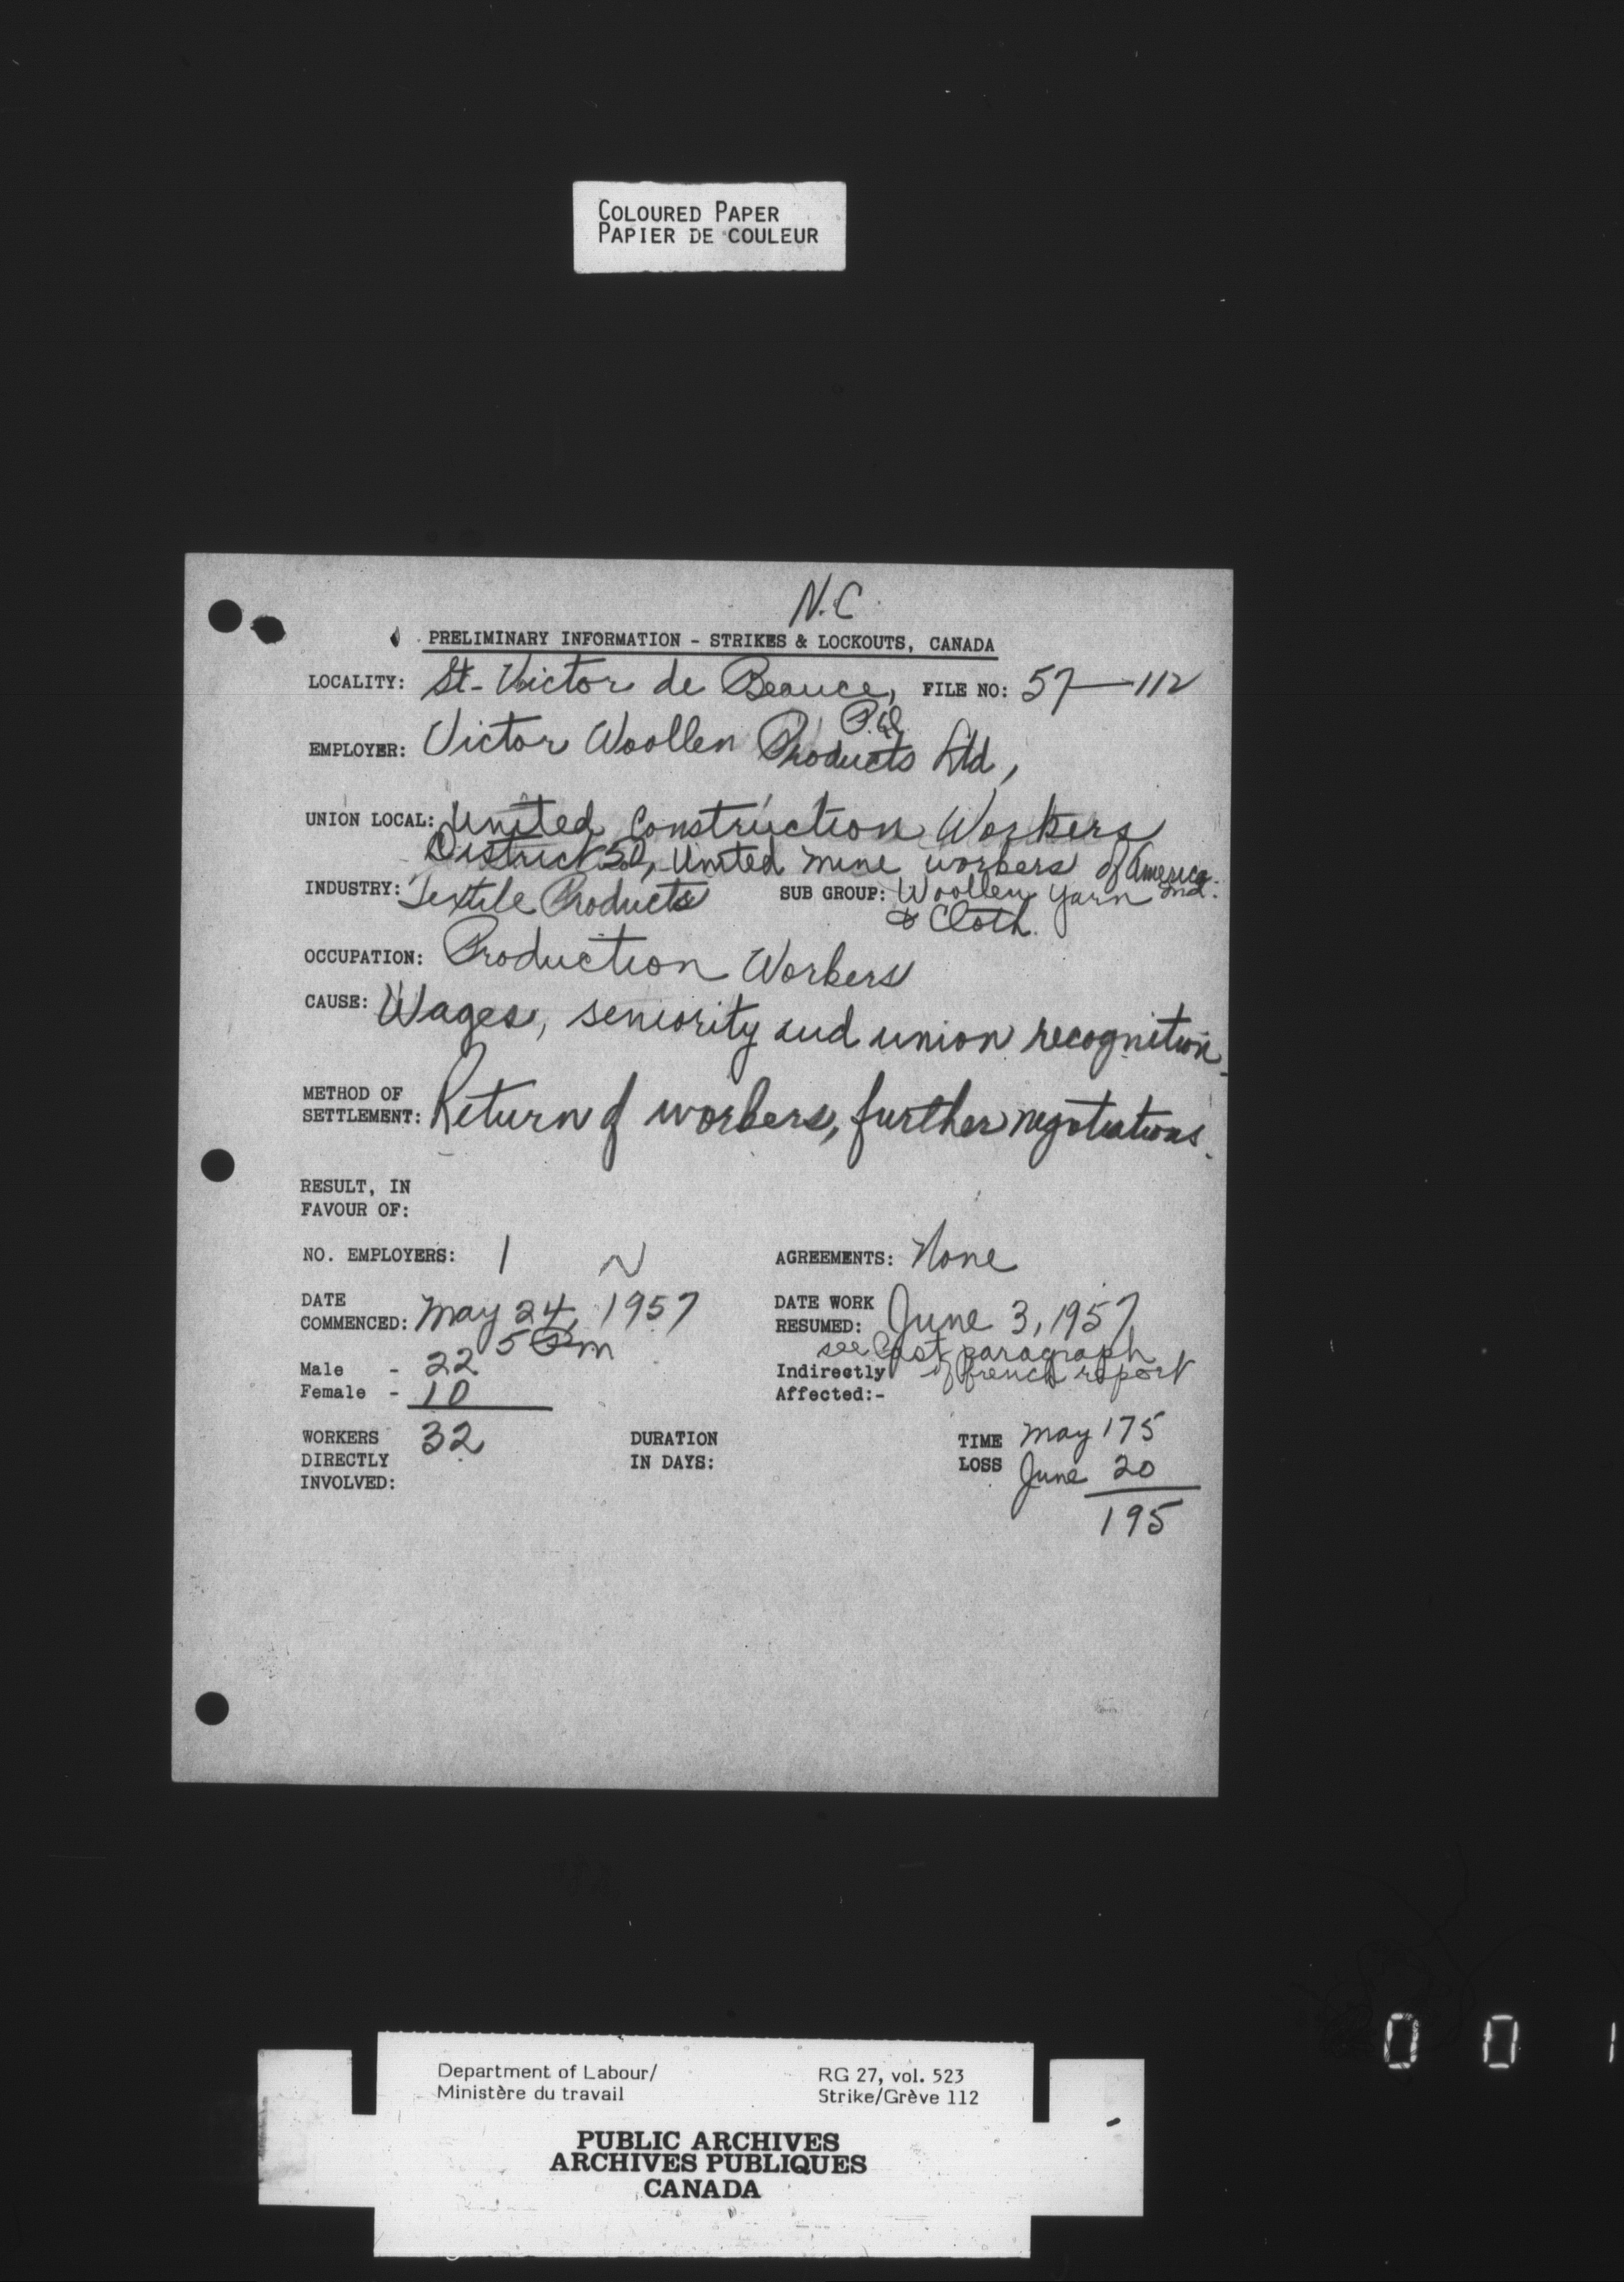 COLOURED PAPER
PAPIER DE COULEUR
N.C.
PRELIMINARY INFORMATION - STRIKES & LOCKOUTS, CANADA
LOCALITY: St-Victor de Beauce, FILE NO: 57-112
P.Q.
EMPLOYER: Victor Woollen Products Ltd,
UNION LOCAL: United Construction Workers
District 50, United mine workers of America
INDUSTRY: Textile Products SUB GROUP: Woollen yarn Ind.
& Cloth.
OCCUPATION: Production Workers
CAUSE: Wages, seniority and union recognition.
METHOD OF
SETTLEMENT: Return of workers, further negotiations.
RESULT, IN
FAVOUR OF:
NO. EMPLOYERS: 1 AGREEMENTS: None
DATE
COMMENCED: May 24, 1957
5 Pm
DATE WORK
RESUMED: June 3, 1957
see last paragraph
of french report
Male - 22
Female - 10
Indirectly
Affected:-
WORKERS
DIRECTLY
INVOLVED: 32
DURATION
IN DAYS:
TIME
LOSS
May 175
June 20
195
Department of Labour/
Ministère du travail
RG 27, vol. 523
Strike/Grève 112
PUBLIC ARCHIVES
ARCHIVES PUBLIQUES
CANADA
0 0 1